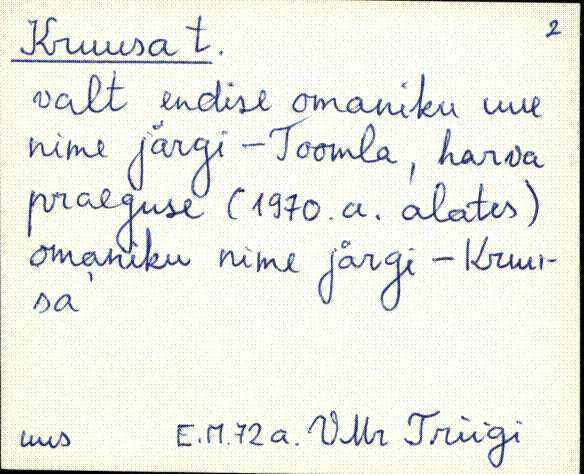 2
Kruusa t.
valt endise omaniku uue
nime järgi - Toomla, harva
praeguse (1970. a. alates)
omaniku nime järgi - Kruu-
sa
uus E.M.72 a. VMr Triigi